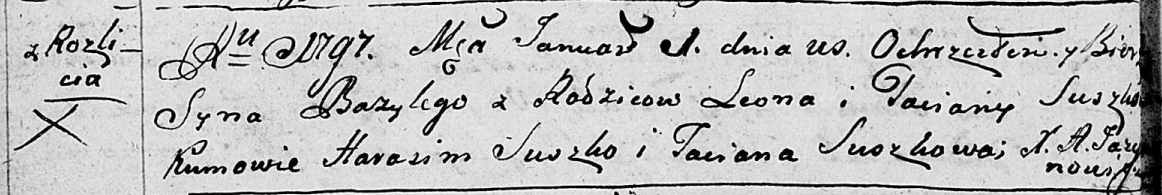 z Rozli-
cia
Ru 1797. Mca Januar 1. dnia us. Ochrzciłem. y Bier
Syna Bazylego z Rodzicow Leona i Taciany Suszko
Kumowie Harasim Suszko i Taciana Suszkowa; X. A.